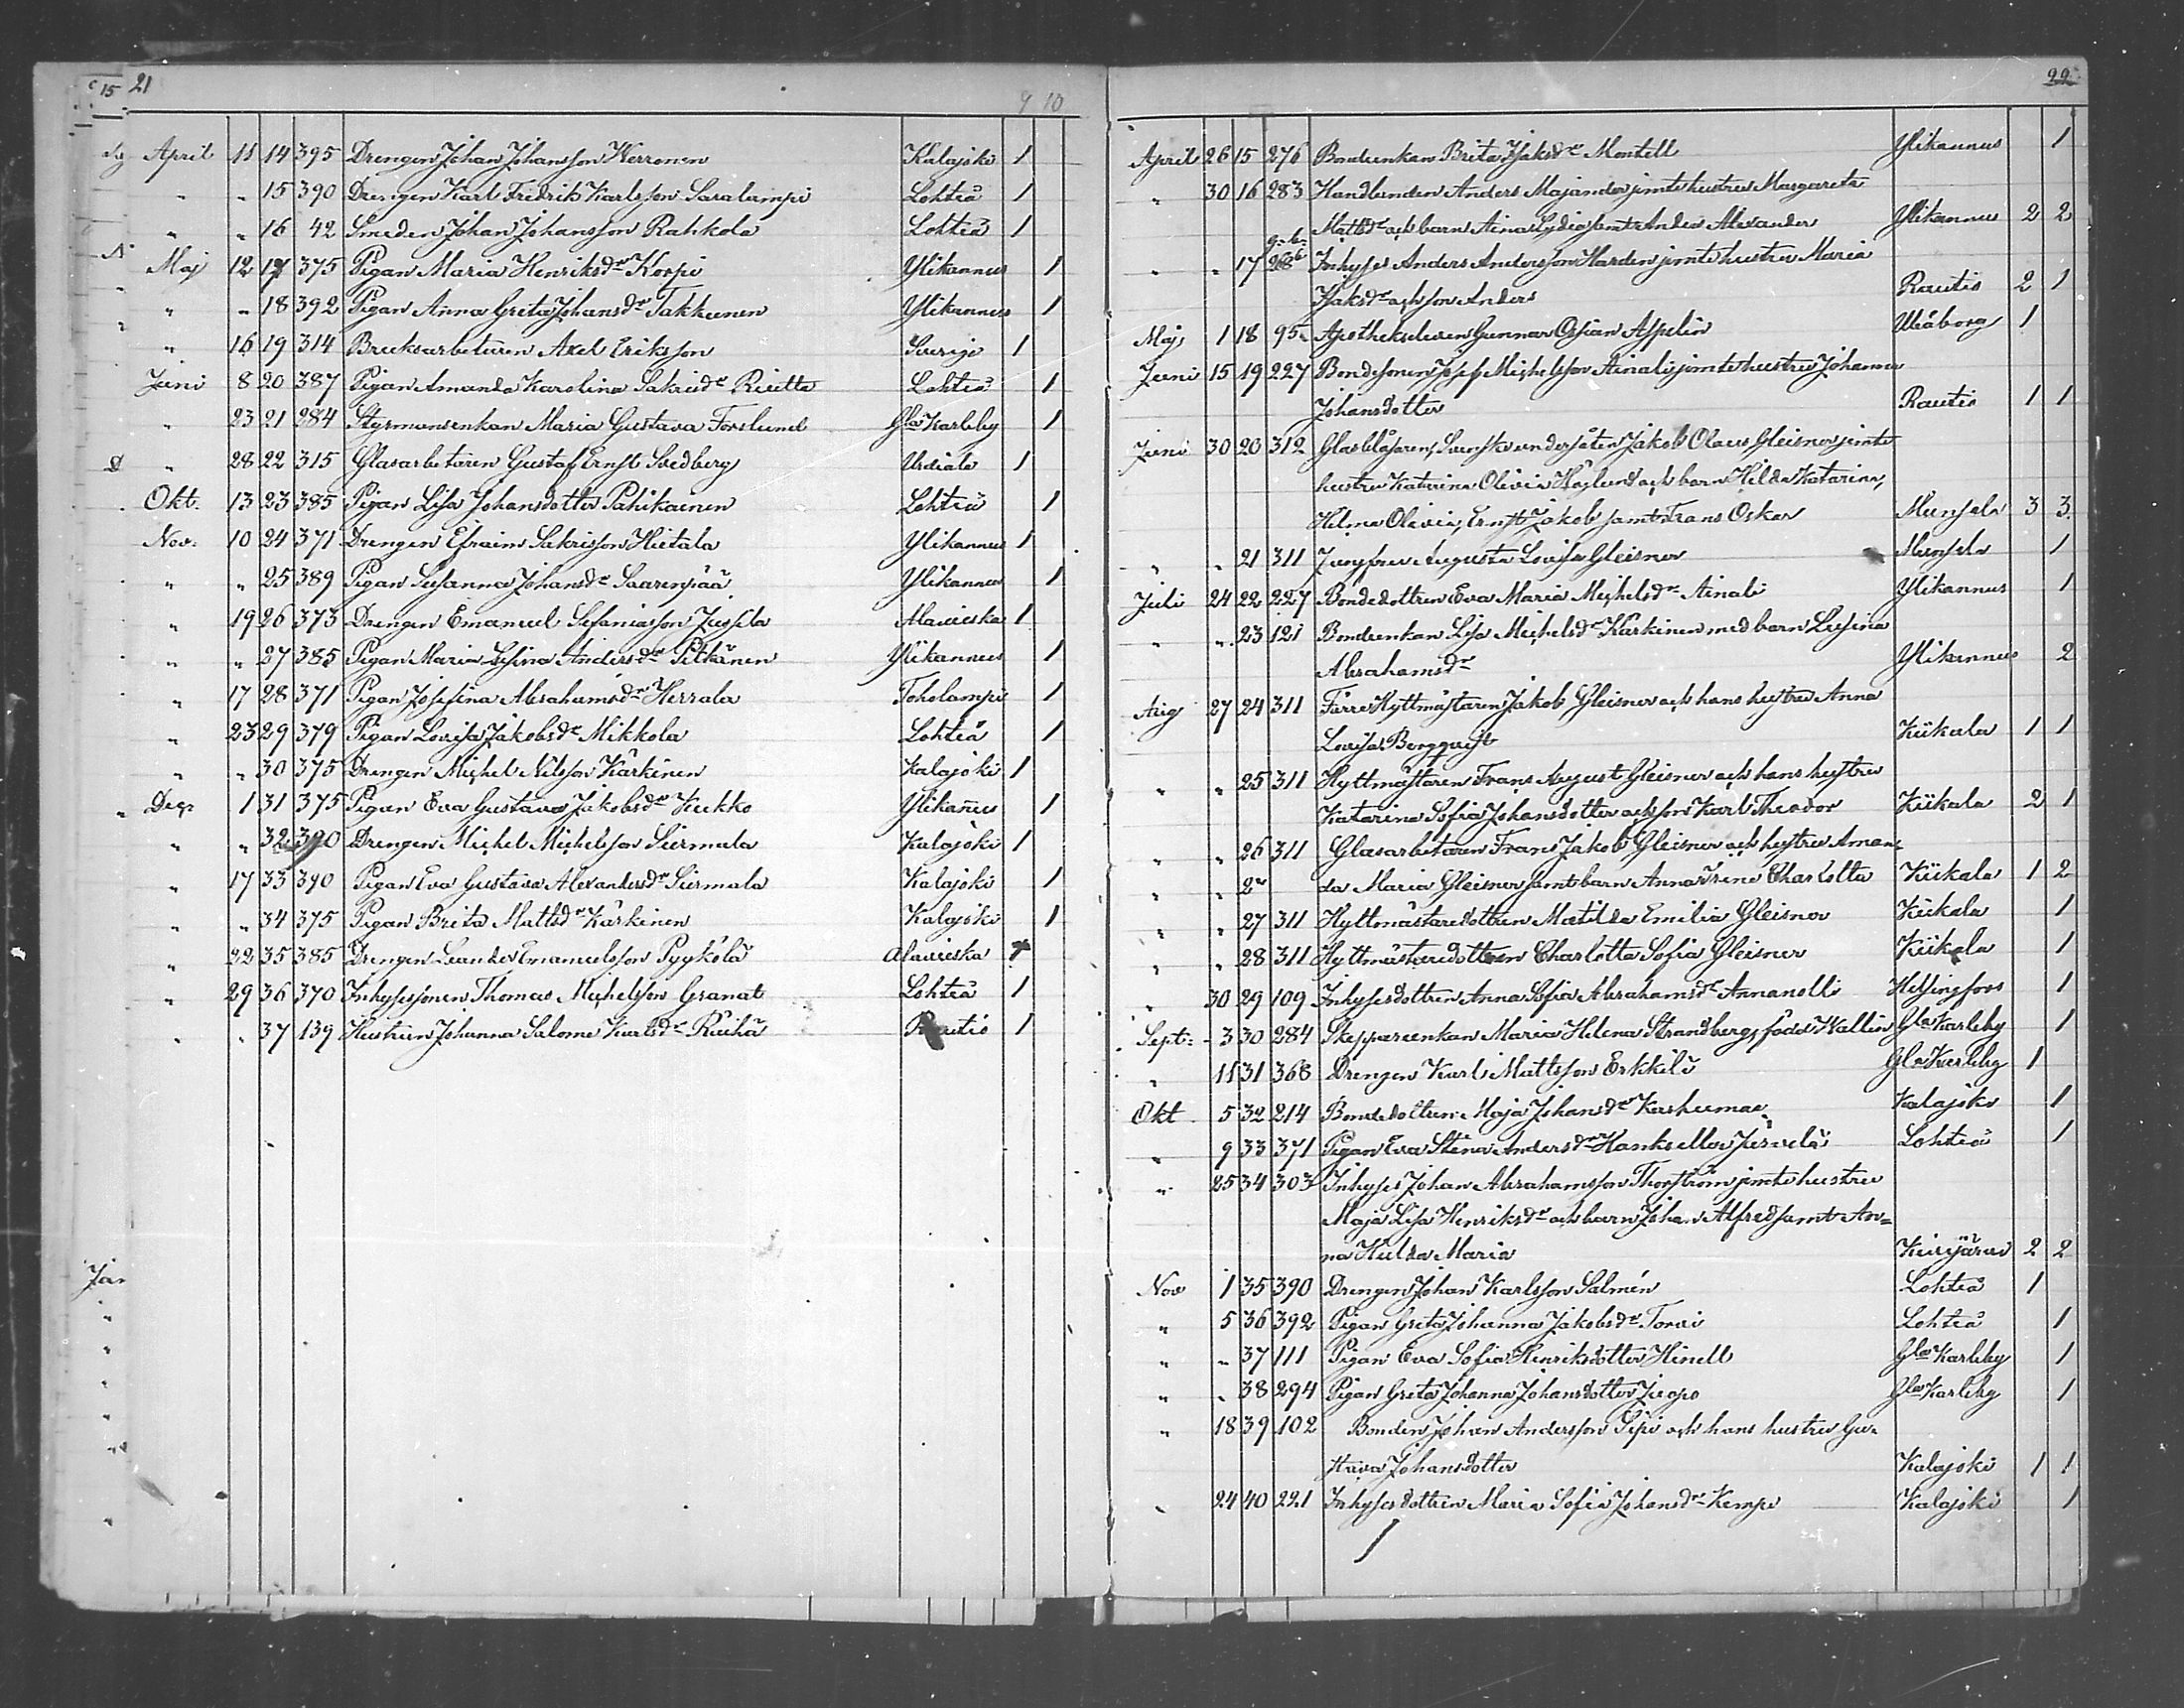 21
9 10
April 11 14 395 Drengen Johan Johansson Herronen Kalajoki 1
" " 15 390 Drengen Karl Fredrik Karlsson Saralampi Lohteå 1
" " 16 42 Smeden Johan Johansson Rahkola Lohteå 1
Maj 12 17 375 Pigan Maria Henriksd:r Korpi Ylikannus 1
" " 18 392 Pigan Anna Greta Johansd:r Takkunen Ylikannus 1
" 16 19 314 Bruksarbetaren Axel Eriksson Sverige 1
Juni 8 20 387 Pigan Amanda Karolina Sakrisd:r Riutta Lohteå 1
" 23 21 284 Styrmansenkan Maria Gustava Forslund Gla Karleby 1
" 28 22 315 Glasarbetaren Gustaf Ernst Svedberg Urdiala 1
Okt. 13 23 385 Pigan Lisa Johansdotter Pahikainen Lohteå 1
Nov. 10 24 371 Drengen Efraim Sakrisson Hietala Ylikannus 1
" " 25 389 Pigan Susanna Johansd:r Saarenpää Ylikannus 1
" 19 26 373 Drengen Emanuel Sefaniasson Jussila Alavieska 1
" " 27 385 Pigan Maria Lisina Andersd:r Pitkänen Ylikannus 1
" 17 28 371 Pigan Josefina Abrahamsd:r Herrala Toholampi 1
" 23 29 379 Pigan Lovisa Jakobsd:r Mikkola Lohteå 1
" " 30 375 Drengen Michel Nilsson Kärkinen Kalajoki 1
" Dec. 1 31 375 Pigan Eva Gustava Jakobsd:r Kukko Ylikanus 1
" " 32 390 Drengen Michel Michelsson Siermala Kalajoki 1
" 17 33 390 Pigan Eva Gustava Alexandersd:r Siermala Kalajoki 1
" " 34 375 Pigan Brita Mattsd:r Kärkinen Kalajoki 1
" 22 35 385 Drengen Leander Emanuelsson Pyykölä Alavieska 1
" 29 36 370 Inhysessonen Thomas Michelsson Granat Lohteå 1
" " 37 139 Hustrun Johanna Salome Karlsd:r Räihä Rautio 1
22
April 26 15 276 Bondenkan Brita Isaksd:r Montell Ylikannus 1
" 30 16 283 Handlanden Anders Majander jemte hustru Margareta
Mattsd:r och barn Aina Lydia samt Anders Alexander Ylikannus 2 2
" " 17 268 Inhyses Anders Andersson Harden jemte hustru Maria
Isaksd:r och son Anders Rautio 2 1
Maj 1 18 95 Apotekseleven Gunnar Ossian Aspelin Uleåborg 1
Juni 15 19 227 Bondesonen Josef Michelsson Ainali jemte hustru Johanna
Johansdotter Rautio 1 1
Juni 30 20 312 Glasblåsaren, Svenska undersåten Jakob Olaus Gleisner jemte
hustru Katarina Olivia Höglund och barn Hilda Katarina,
Helma Olivia, Ernst Jakob samt Frans Oskar Munsala 3 3
" " 21 311 Jungfrun Augusta Lovisa Gleisner Munsala 1
Juli 24 22 227 Bondedottren Eva Maria Michelsd:r Ainali Ylikannus 1
" " 23 121 Bondenkan Lisa Michelsd:r Karkinen med barn Lusina
Abrahamsd:r Ylikannus 2
Aug 27 24 311 Förre Hyttmästaren Jakob Gleisner och hans hustru Anna
Lovisa Bergqvist Kiikala 1 1
" " 25 311 Hyttmästaren Frans August Gleisner och hans hustru
Katarina Sofia Johansdotter och son Karl Theodor Kiikala 2 1
" " 26 311 Glasarbetaren Frans Jakob Gleisner och hustru Aman-
da Maria Gleisner samt barn Anna Irene Charlotta Kiikala 1 2
" " 27 311 Hyttmästaredottren Matilda Emilia Gleisner Kiikala 1
" " 28 311 Hyttmästaredottren Charlotta Sofia Gleisner Kiikala 1
" 30 29 109 Inhysesdottren Anna Sofia Abrahamsd:r Annanolli Helsingfors 1
Sept. 3 30 284 Skepparenkan Maria Helena Strandberg, född Wallin Gla Karleby 1
" 11 31 368 Drengen Karl Mattsson Erkkilä Gla Karleby 1
Okt 5 32 214 Bondedottren Maja Johansd:r Karhumaa Kalajoki 1
" 9 33 371 Pigan Eva Stina Andersd:r Hanks eller Järvelä Lohteå 1
" 25 34 303 Inhyses Johan Abrahamsson Thorström jemte hustru
Maja Lisa Henriksd:r och barn Johan Alfred samt An-
na Hulda Maria Kuivjärvi 2 2
Nov 1 35 390 Drengen Johan Karlsson Salmén Lohteå 1
" 5 36 392 Pigan Greta Johanna Jakobsd:r Torvi Lohteå 1
" " 37 111 Pigan Eva Sofia Henriksdotter Hinell Gla Karleby 1
" " 38 294 Pigan Greta Johanna Johansdotter Juopo Gla Karleby 1
" 18 39 102 Bonden Johan Andersson Sipi och hans hustru Gu-
stava Johansdotter Kalajoki 1 1
" 24 40 221 Inhysesdottren Maria Sofia Johansd:r Kempe Kalajoki 1